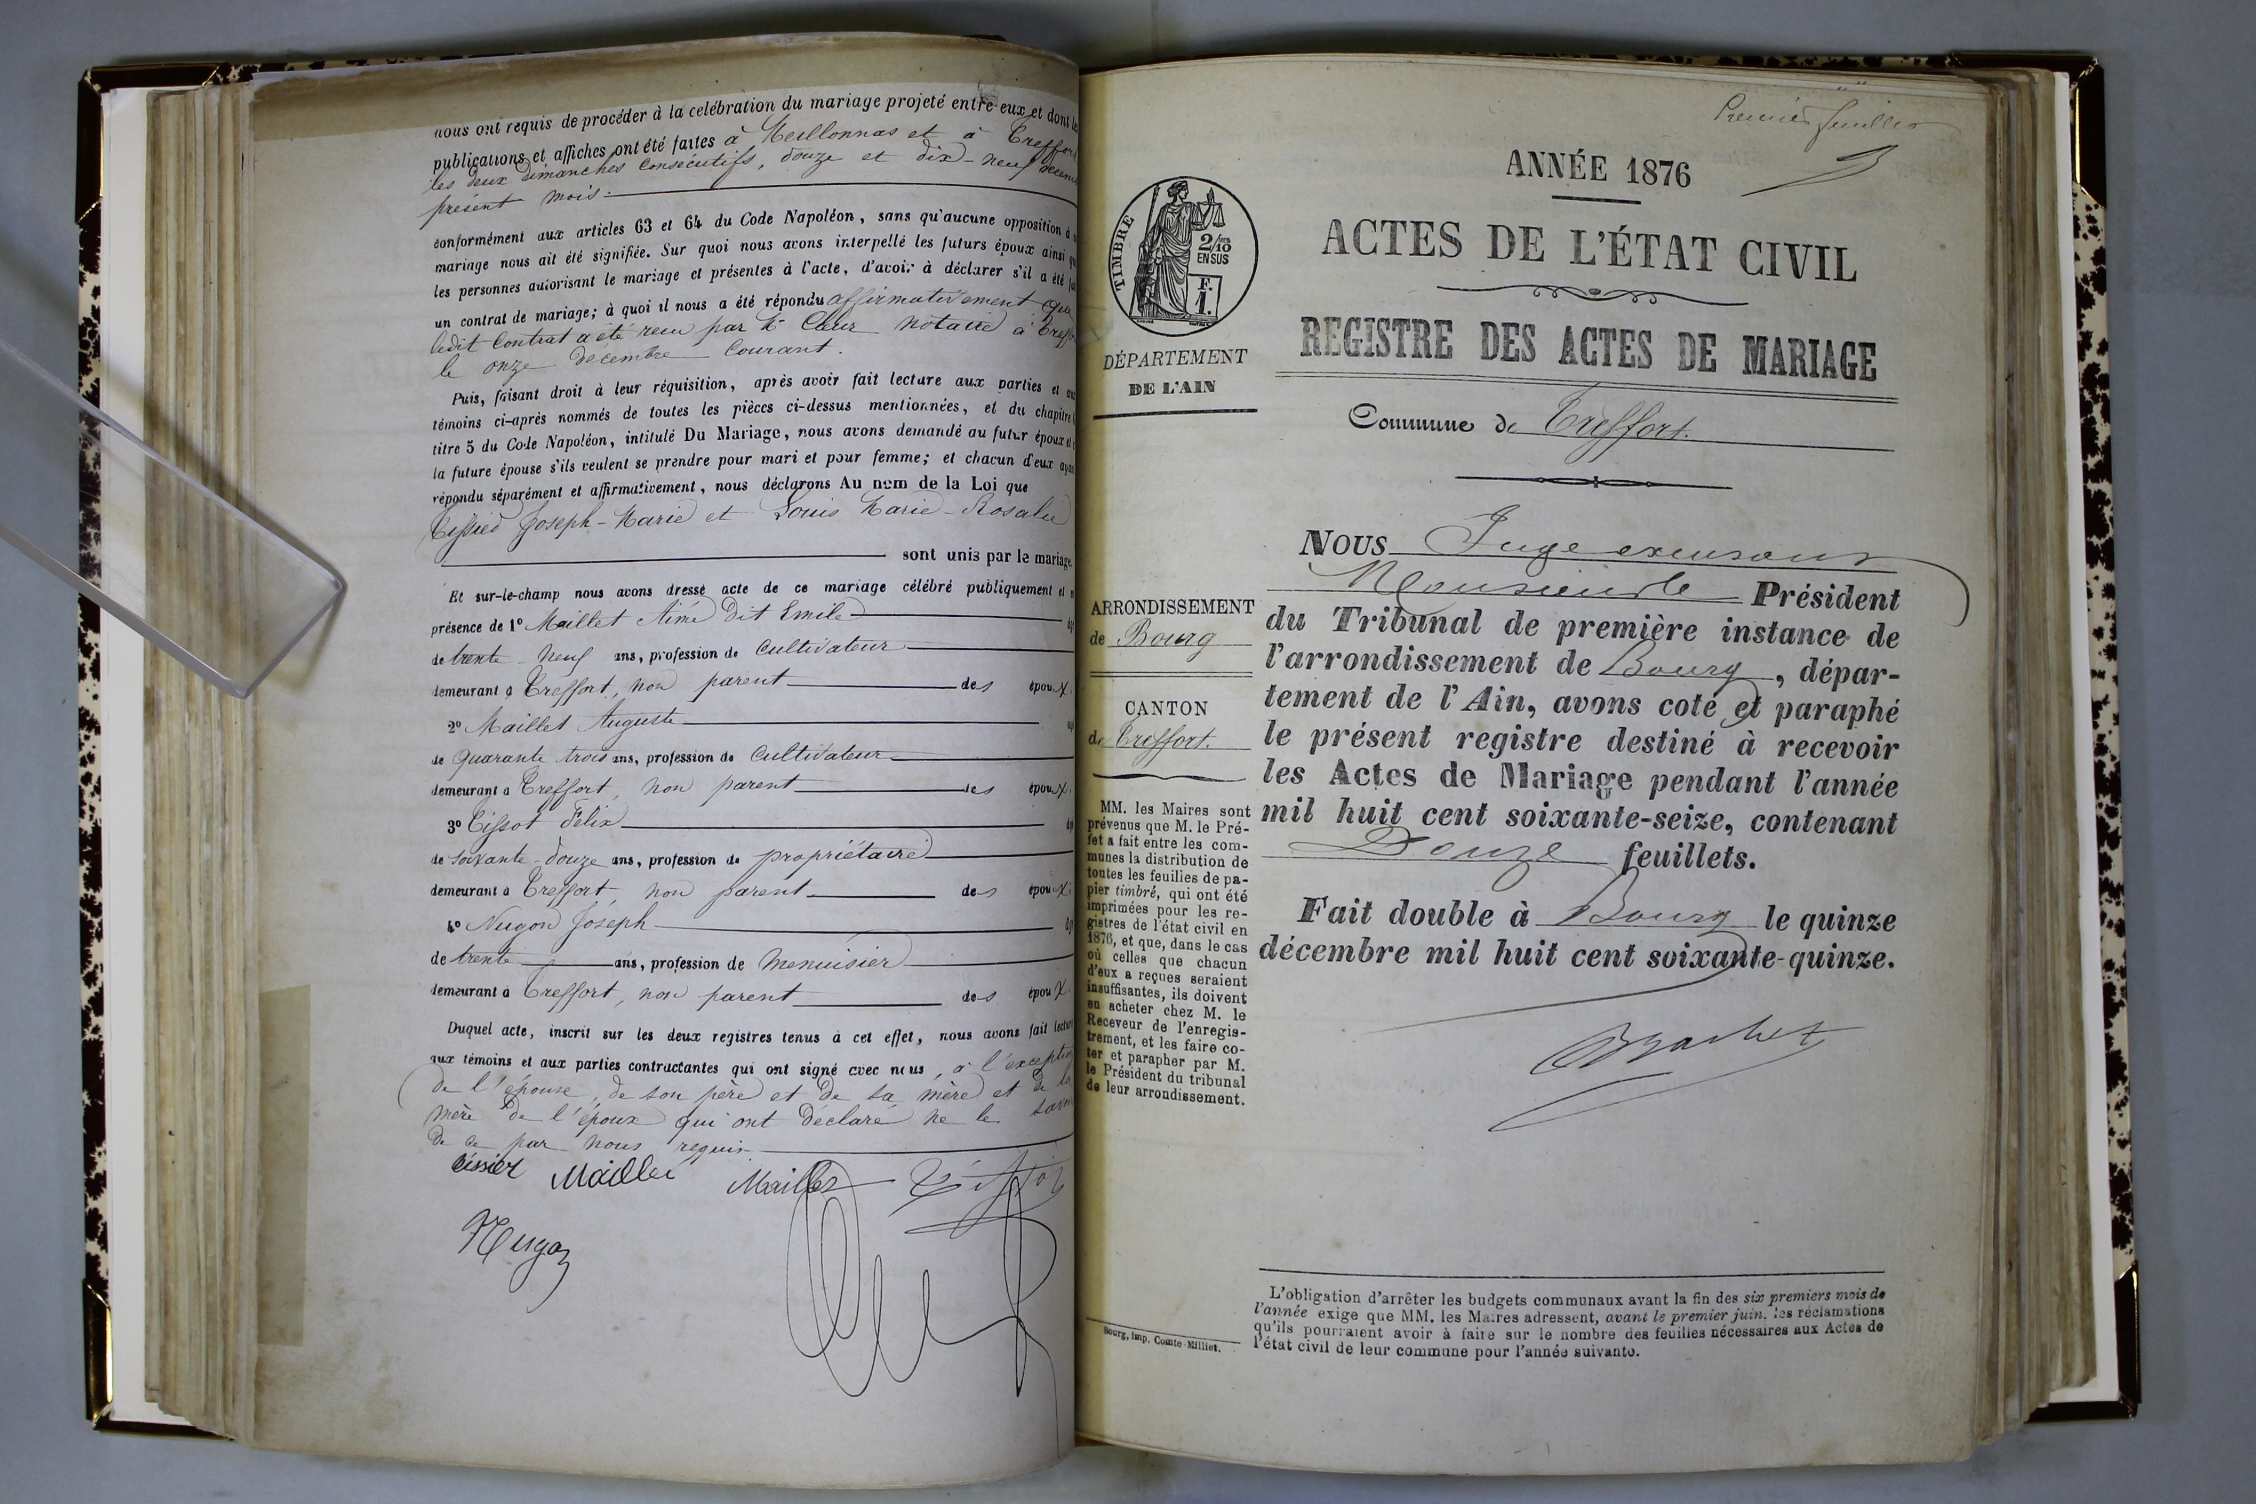 nous ont requis de procéder à la celébration du mariage projeté entre eux et dont les
publications et affiches ont été faites à Meillonnas et à Treffort
les deux dimanches consécutifs, douze et dix-neuf décembre
présent mois
conformément aux articles 63 et 64 du Code Napoléon, sans qu'aucune opposition à
mariage nous ait été signifiée. Sur quoi nous avons interpellé les futurs époux ainsi
les personnes autorisant le mariage et présentes à l'acte, d'avoir à déclarer s'il a été
un contrat de mariage; à quoi il nous a été répondu affirmativement que
ledit Contrat a été reçu par Me Cœur notaire à Treffort
le onze décembre courant.
Puis, faisant droit à leur réquisition, après avoir fait lecture aux parties et aux
témoins ci-après nommés de toutes les pièces ci-dessus mentionnées, et du chapitre
titre 5 du Code Napoléon, intitulé Du Mariage, nous avons demandé au futur époux et
la future épouse s'ils veulent se prendre pour mari et pour femme; et chacun d'eux ayant
répondu séparément et affirmativement, nous déclarons Au nom de la Loi que
Tissier Joseph-Marie et Louis Marie-Rosalie
sont unis par le mariage.
Et sur-le-champ nous avons dressé acte de ce mariage célébré publiquement et
présence de 1° Maillet Aimé dit Emile
de trente neuf ans, profession de Cultivateur
demeurant à Treffort, non parent des époux.
2° Maillet Auguste
de quarante trois ans, profession de Cultivateur
demeurant à Treffort, non parent des époux.
3° Tissot Félix
de soixante-douze ans, profession de propriétaire
demeurant à Treffort non parent des époux.
4° Nugon Joseph
de trente ans, profession de menuisier
demeurant à Treffort, non parent des époux.
Duquel acte, inscrit sur les deux registres tenus à cet effet, nous avons fait lecture
aux témoins et aux parties contractantes qui ont signé avec nous, à l'exception
de l'épouse, de son père et de sa mère et de la
mère de l'époux qui ont déclaré ne le savoir
de ce par nous requis.
tissier Maillet Maillet Tissot
Nugon
Premier feuillet
ANNÉE 1876
ACTES DE L'ÉTAT CIVIL
REGISTRE DES ACTES DE MARIAGE
Commune de Treffort.
TIMBRE
2/10
EN SUS
F.
1.
DÉPARTEMENT
DE L'AIN
ARRONDISSEMENT
de Bourg
CANTON
de Treffort.
MM. les Maires sont
prévenus que M. le Pré-
fet a fait entre les com-
munes la distribution de
toutes les feuilles de pa-
pier timbré, qui ont été
imprimées pour les re-
gistres de l'état civil en
1876, et que, dans le cas
où celles que chacun
d'eux a reçues seraient
insuffisantes, ils doivent
en acheter chez M. le
Receveur de l'enregis-
trement, et les faire co-
ter et parapher par M.
le Président du tribunal
de leur arrondissement.
Bourg, imp. Comte-Milliet.
NOUS Juge excusant
Monsieur le Président
du Tribunal de première instance de
l'arrondissement de Bourg, dépar-
tement de l'Ain, avons coté et paraphé
le présent registre destiné à recevoir
les Actes de Mariage pendant l'année
mil huit cent soixante-seize, contenant
Douze feuillets.
Fait double à Bourg le quinze
décembre mil huit cent soixante-quinze.
L'obligation d'arrêter les budgets communaux avant la fin des six premiers mois de
l'année exige que MM. les Maires adressent, avant le premier juin, les réclamations
qu'ils pourraient avoir à faire sur le nombre des feuilles nécessaires aux Actes de
l'état civil de leur commune pour l'année suivante.